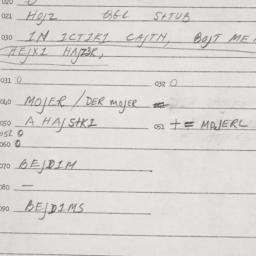 020
021 HOJZ DEL SHTUB
030 IN ICTIRI CAJTN, BOJT ME
HEJXI HAJZER,
031 0 032 0
040 MOJER / DER MOJER
050 A HAJSHKI 051 += MOJERL
051 0
060 0
070 BEJDIM
080 —
090 BEJDIMS